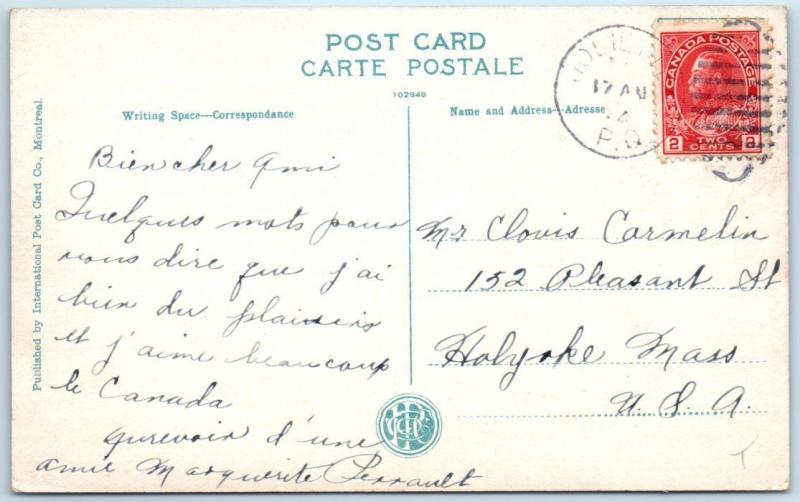 POST CARD
CARTE POSTALE
102948
Writing Space---Correspondance
Name and Address---Adresse
Published by International Post Card Co., Montreal.
CANADA POSTAGE
2 TWO CENTS 2
P.Q.
Bien cher Ami
Quelques mots pour
vous dire que j'ai
bien du plaisirs
et j'aime beaucoup
le Canada
aurevoir d'une
amie Marguerite Perrault
Mr Clovis Carmelin
152 Pleasant St
Holyoke Mass
U. S. A.